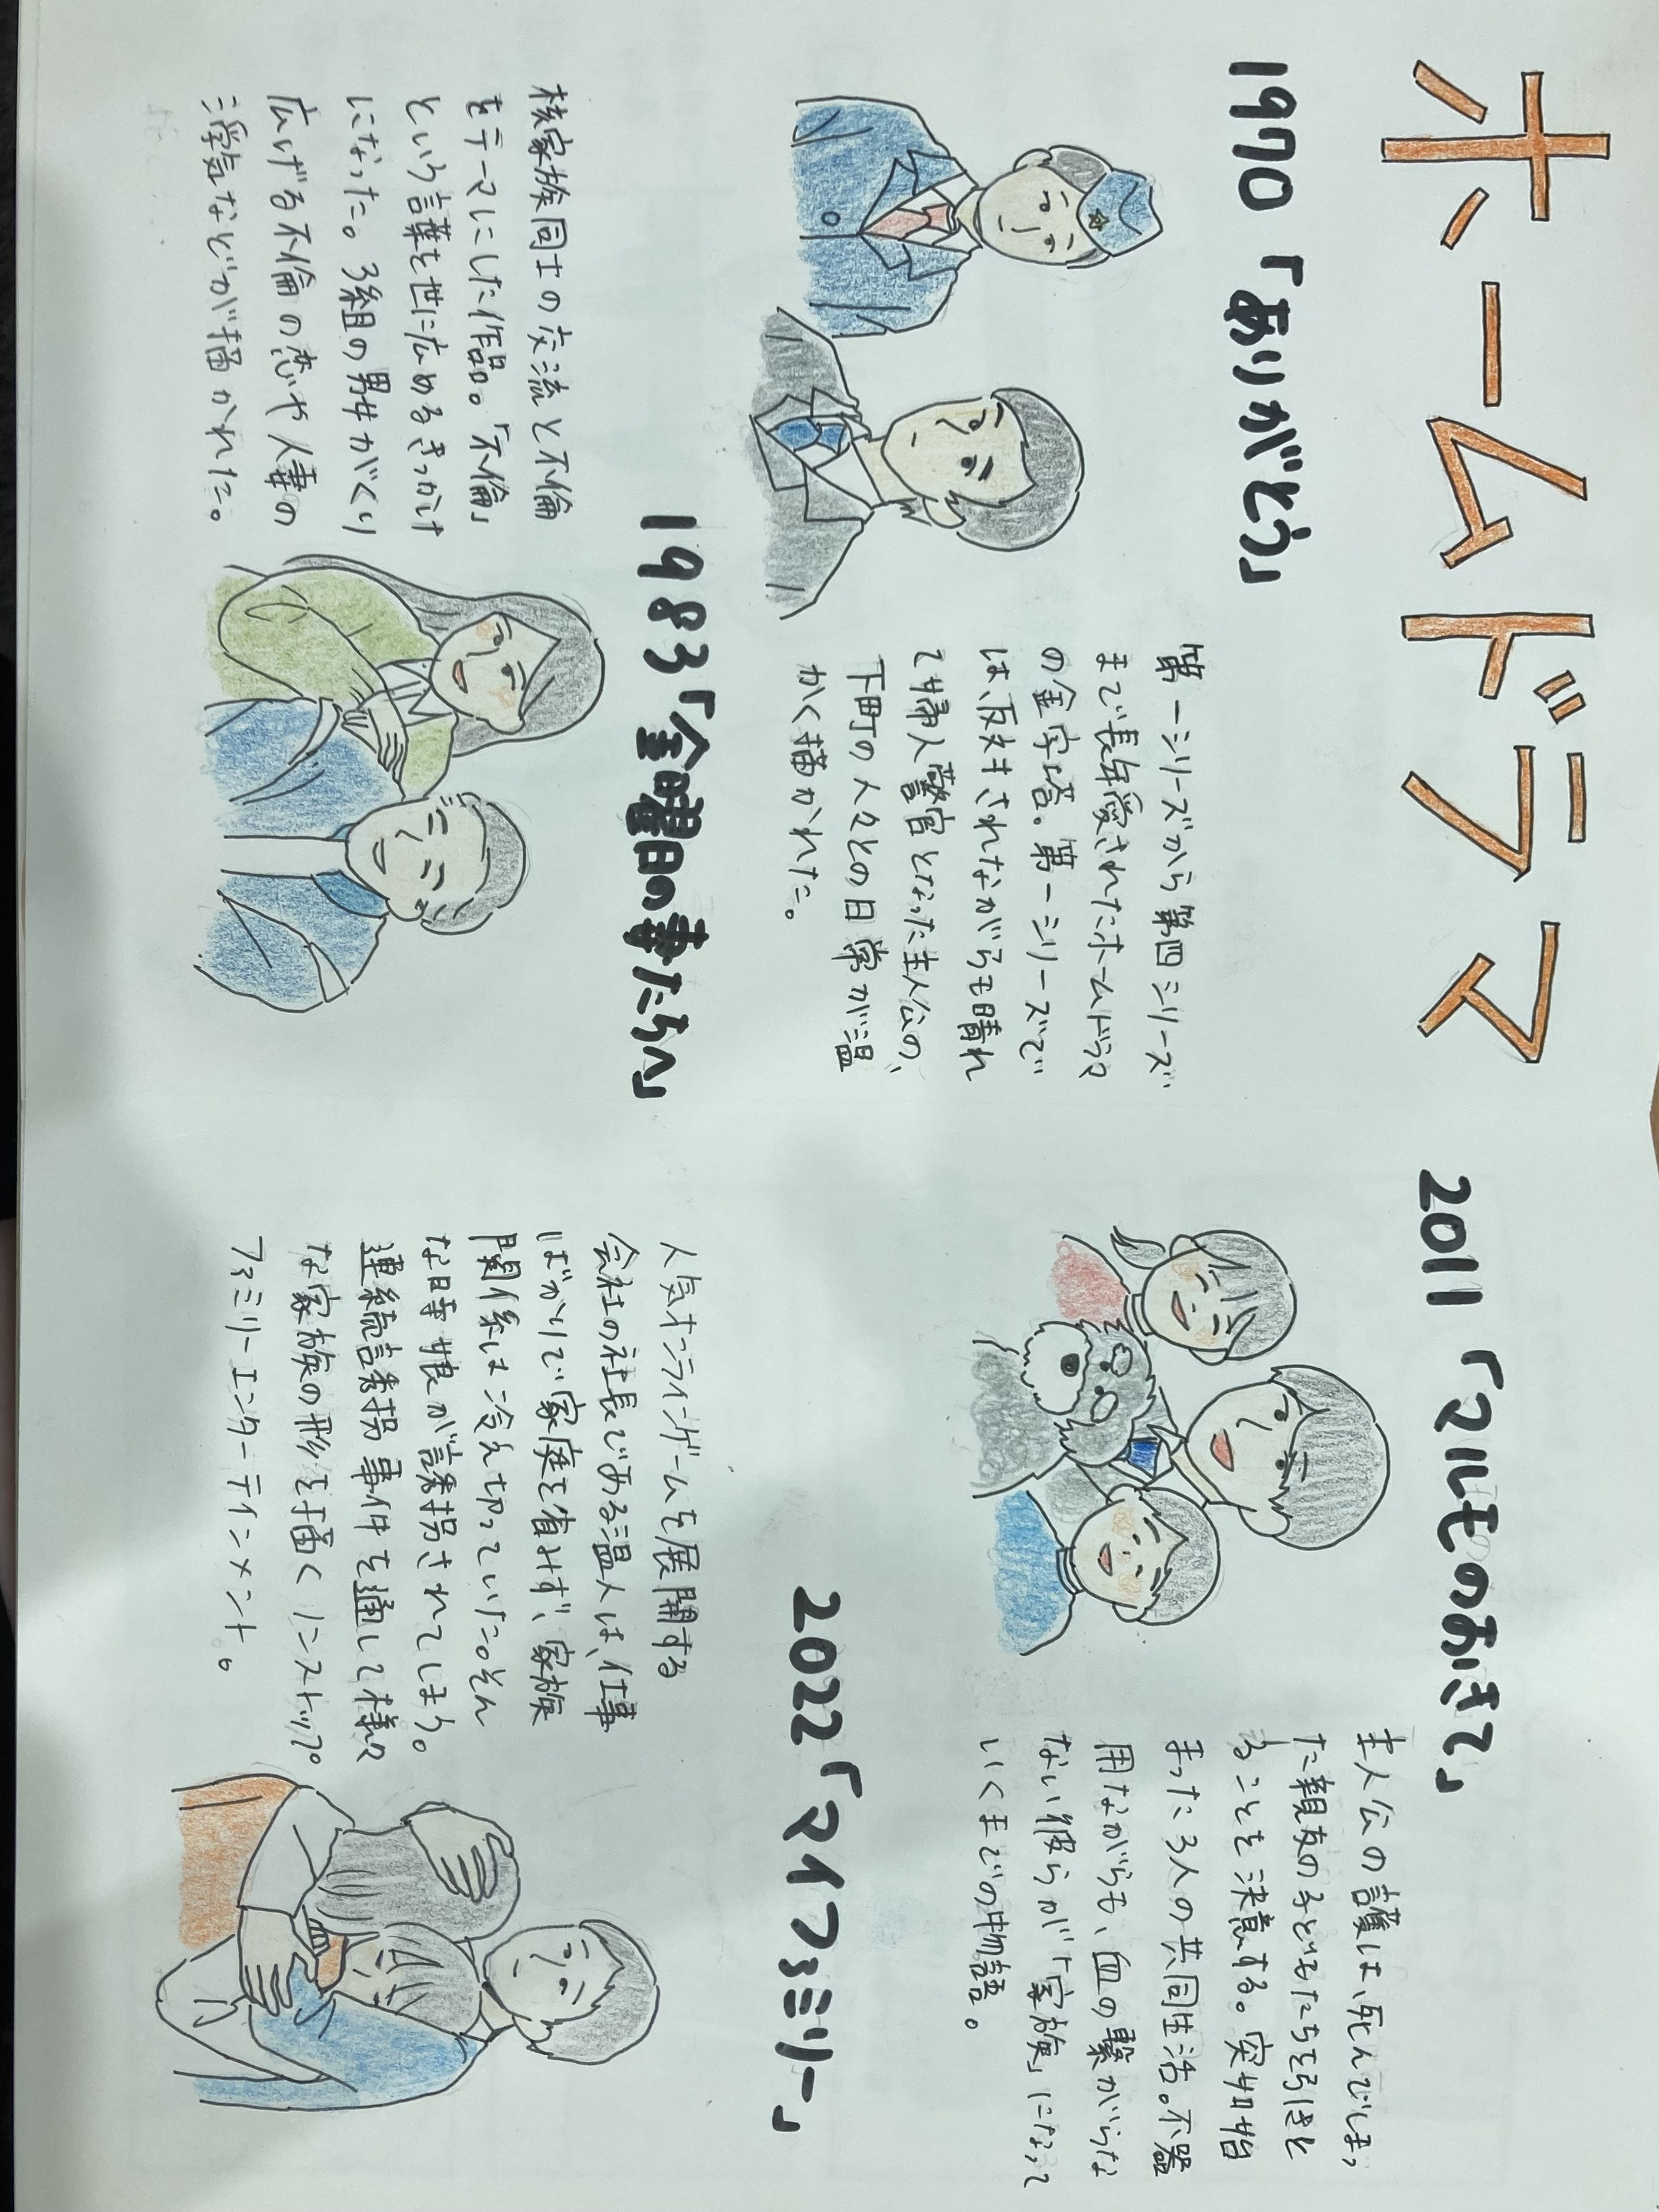 ホームドラマ
1970「ありがとう」
第一シリーズから第四シリーズ
まで長年愛されたホームドラマ
の金字塔。第一シリーズで
は、反対されながらも晴れ
て婦人警官となった主人公の、
下町の人々との日常が温
かく描かれた。
1983「金曜日の妻たちへ」
核家族同士の交流と不倫
をテーマにした作品。「不倫」
という言葉を世に広めるきっかけ
になった。3組の男女がくり
広げる不倫の恋や人妻の
浮気などが描かれた。
2011「マルモのおきて」
主人公の護は、死んでしまっ
た親友の子どもたちを引きと
ることを決意する。突如始
まった3人の共同生活。不器
用ながらも、血の繋がらな
ない彼らが「家族」になって
いくまでの物語。
2022「マイファミリー」
人気オンラインゲームを展開する
会社の社長である温人は、仕事
ばかりで家庭を省みず、家族
関係は冷え切っていた。そん
な時娘が誘拐されてしまう。
連続誘拐事件を通して様々
な家族の形を描くノンストップ
ファミリーエンターテインメント。